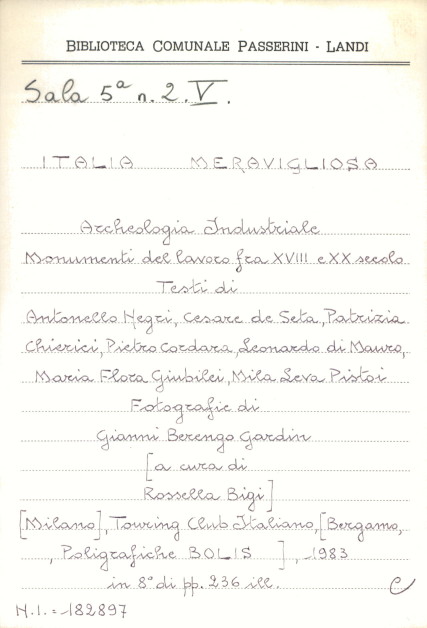 BIBLIOTECA COMUNALE PASSERINI - LANDI
Sala 5ª n. 2. V.
ITALIA MERAVIGLIOSA
Archeologia Industriale
Monumenti del lavoro fra XVIII e XX secolo
Testi di
Antonello Negri, Cesare de Seta, Patrizia
Chierici, Pietro Cordara, Leonardo di Mauro,
Maria Flora Giubilei, Mila Leva Pistoi
Fotografie di
Gianni Berengo Gardin
[a cura di
Rossella Bigi]
[Milano], Touring Club Italiano, [Bergamo,
, Poligrafiche BOLIS ], 1983
in 8° di pp. 236 ill.
C
N.I. = 182897